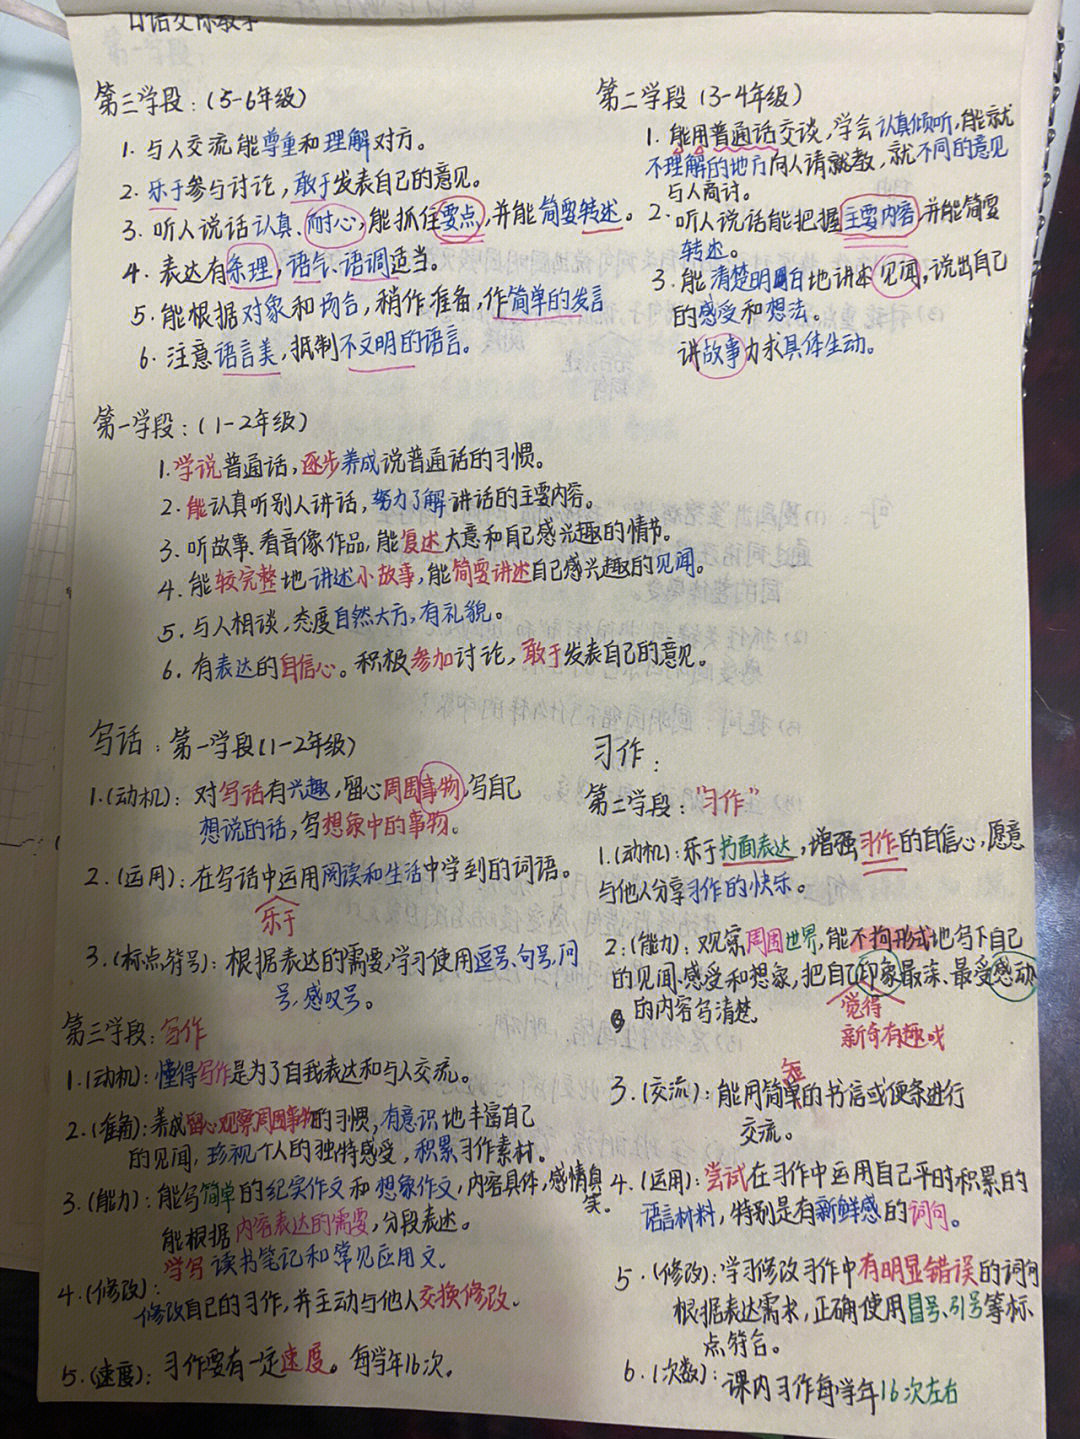 口语交际教学
第三学段：(5-6年级)
1. 与人交流能尊重和理解对方。
2. 乐于参与讨论，敢于发表自己的意见。
3. 听人说话认真、耐心，能抓住要点，并能简要转述。
4. 表达有条理，语气、语调适当。
5. 能根据对象和场合，稍作准备，作简单的发言
6. 注意语言美，抵制不文明的语言。
第二学段 (3-4年级)
1. 能用普通话交谈，学会认真倾听，能就
不理解的地方向人请教，就不同的意见
与人商讨。
2. 听人说话能把握主要内容，并能简要
转述。
3. 能清楚明白地讲述见闻，说出自己
的感受和想法。
讲故事力求具体生动。
第一学段：(1-2年级)
1. 学说普通话，逐步养成说普通话的习惯。
2. 能认真听别人讲话，努力了解讲话的主要内容。
3. 听故事、看音像作品，能复述大意和自己感兴趣的情节。
4. 能较完整地讲述小故事，能简要讲述自己感兴趣的见闻。
5. 与人相谈，态度自然大方，有礼貌。
6. 有表达的自信心。积极参加讨论，敢于发表自己的意见。
写话：第一学段(1-2年级)
1.(动机)：对写话有兴趣，留心周围事物，写自己
想说的话，写想象中的事物。
2.(运用)：在写话中运用阅读和生活中学到的词语。
乐于
3.(标点符号)：根据表达的需要，学习使用逗号、句号、问
号，感叹号。
第三学段：写作
1.(动机)：懂得写作是为了自我表达和与人交流。
2.(准备)：养成留心观察周围事物的习惯，有意识地丰富自己
的见闻，珍视个人的独特感受，积累习作素材。
3.(能力)：能写简单的纪实作文和想象作文，内容具体，感情真
实。
能根据内容表达的需要，分段表述。
学写读书笔记和常见应用文。
4.(修改)：
修改自己的习作，并主动与他人交换修改。
5.(速度)：习作要有一定速度。每学年16次。
习作：
第二学段："习作"
1.(动机)：乐于书面表达，增强习作的自信心，愿意
与他人分享习作的快乐。
2:(能力)：观察周围世界，能不拘形式地写下自己
的见闻、感受和想象，把自己印象最深、最受感动
的内容写清楚。
觉得
新奇有趣或
短
3.(交流)：能用简单的书信或便条进行
交流。
4.(运用)：尝试在习作中运用自己平时积累的
语言材料，特别是有新鲜感的词句。
5.(修改)：学习修改习作中有明显错误的词句
根据表达需求，正确使用冒号、引号等标
点符合。
6.(次数)：课内习作每学年16次左右